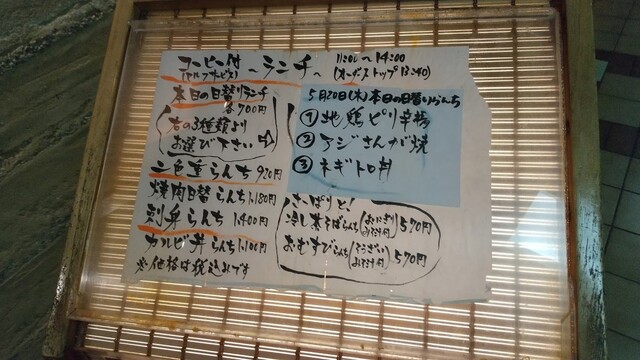 コーヒー付 〜ランチ〜 11:00〜14:00
(セルフサービス) (オーダーストップ13:40)
本日の日替りランチ
各700円
右の3種類より
お選び下さい
二色重らんち 920円
焼肉日替らんち 1.180円
刺身らんち 1.400円
カルビ丼らんち 1.100円
※価格は税込みです
5月20日(木)本日の日替りらんち
① 地鶏ピリ辛揚
② アジさんが焼
③ ネギトロ丼
さっぱりと!
冷し茶そばらんち 570円
おむすびらんち 570円